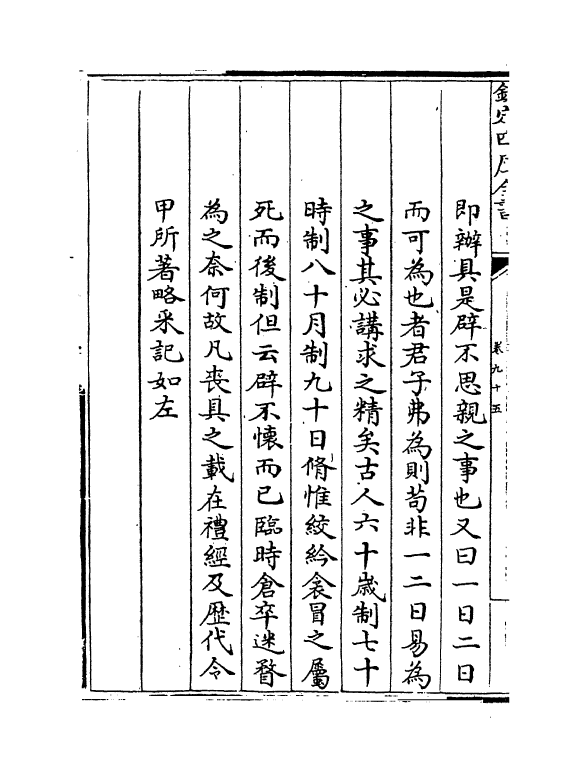 欽定四庫全書
卷九十五
即辦具是辟不思親之事也又曰一日二日
而可為也者君子弗為則苟非一二日易為
之事其必講求之精矣古人六十歲制七十
時制八十月制九十日脩惟絞紟衾冒之屬
死而後制但云辟不懷而已臨時倉卒迷瞀
為之奈何故凡喪具之載在禮經及歴代令
甲所著略采記如左